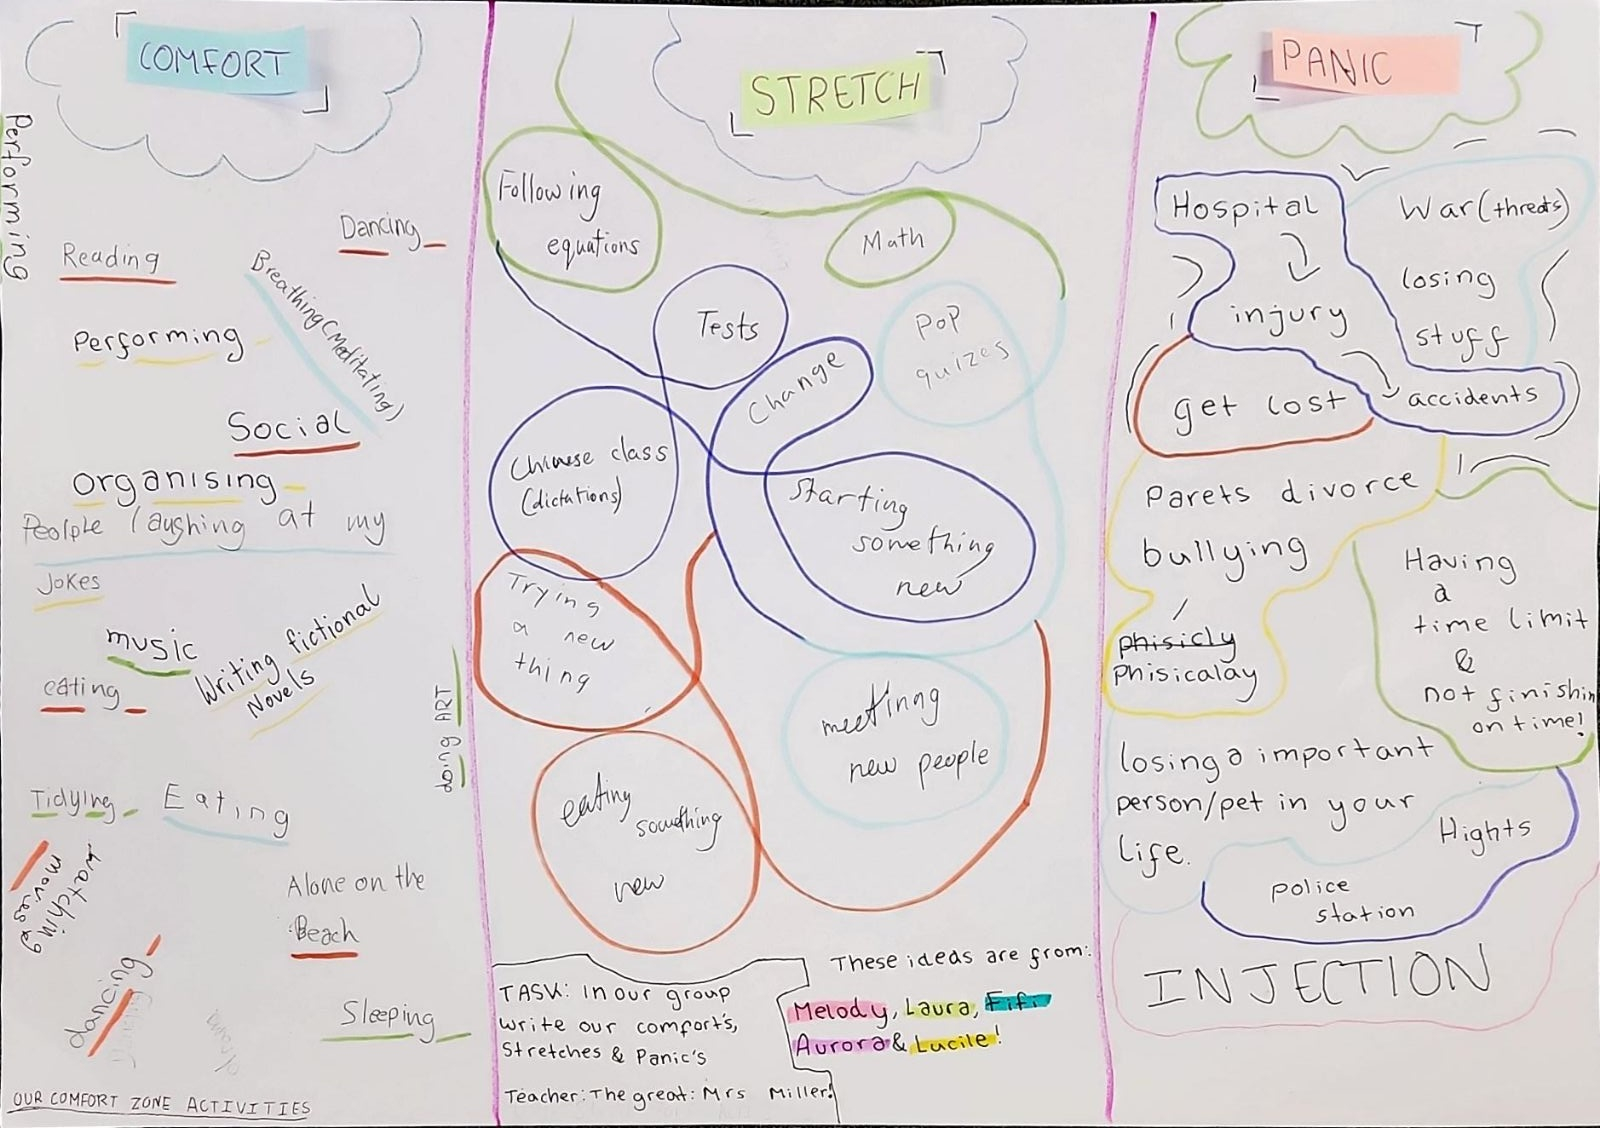 COMFORT
Performing
Dancing
Reading
Breathing (Meditating)
Performing
Social
Organising
Peolple laughing at my
Jokes
music
Writing fictional
Novels
eating
doing ART
Tidying
Eating
watching
movies
Alone on the
Beach
dancing
Sleeping
OUR COMFORT ZONE ACTIVITIES
STRETCH
Following
equations
Math
Tests
Pop
quizes
Change
Chinese class
(dictations)
Starting
something
new
Trying
a new
thing
meetinng
new people
eating
something
new
TASK: In our group
write our comfort's,
Stretches & Panic's
Teacher: The great: Mrs Miller!
These ideas are from:
Melody, Laura, Fifi
Aurora & Lucile!
PANIC
Hospital
injury
War (threats)
losing
stuff
get lost
accidents
Parets divorce
bullying
phisicly
Phisicalay
Having
a
time limit
&
not finishin
on time!
losing a important
person/pet in your
life.
Hights
police
station
INJECTION